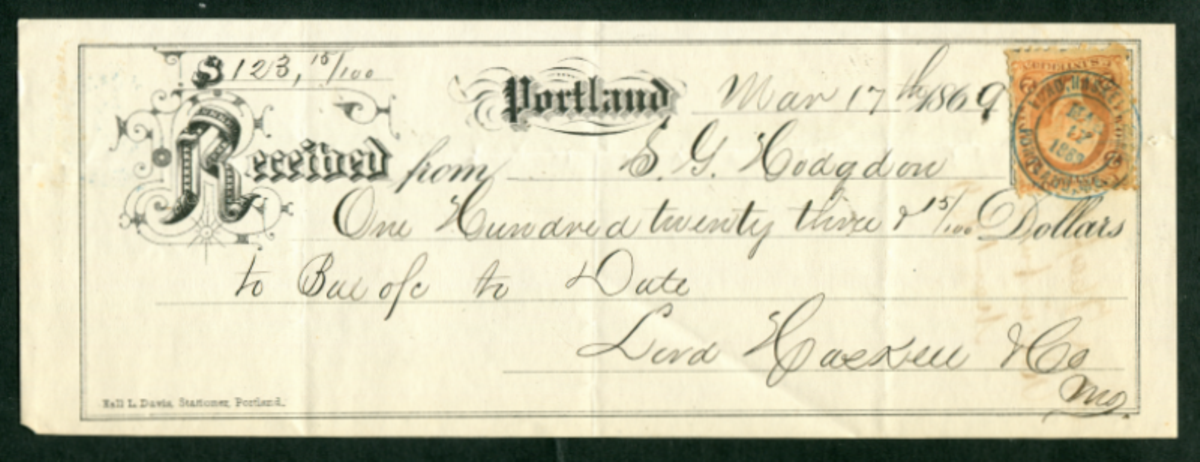 $ 123, 15/100
Portland Mar 17th 1869
Received from S. G. Hodgdon
One Hundred twenty three & 15/100 Dollars
to Bal a/c to Date
Lord Haskell & Co
Hall L. Davis, Stationer, Portland.